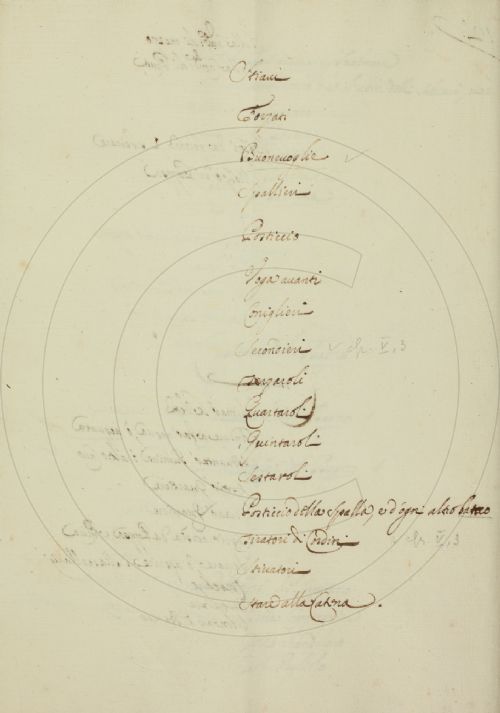 Stiavi
Forzati
Buonevoglie
Spallieri
Posticcio
Vogavanti
Coniglieri
Secondieri
Terzaroli
Quartaroli
Quintaroli
Sestaroli
Posticcio della Spalla, e d'ogni altro banco
Tiratori di Cordini
Stivatori
Stare alla Catena.